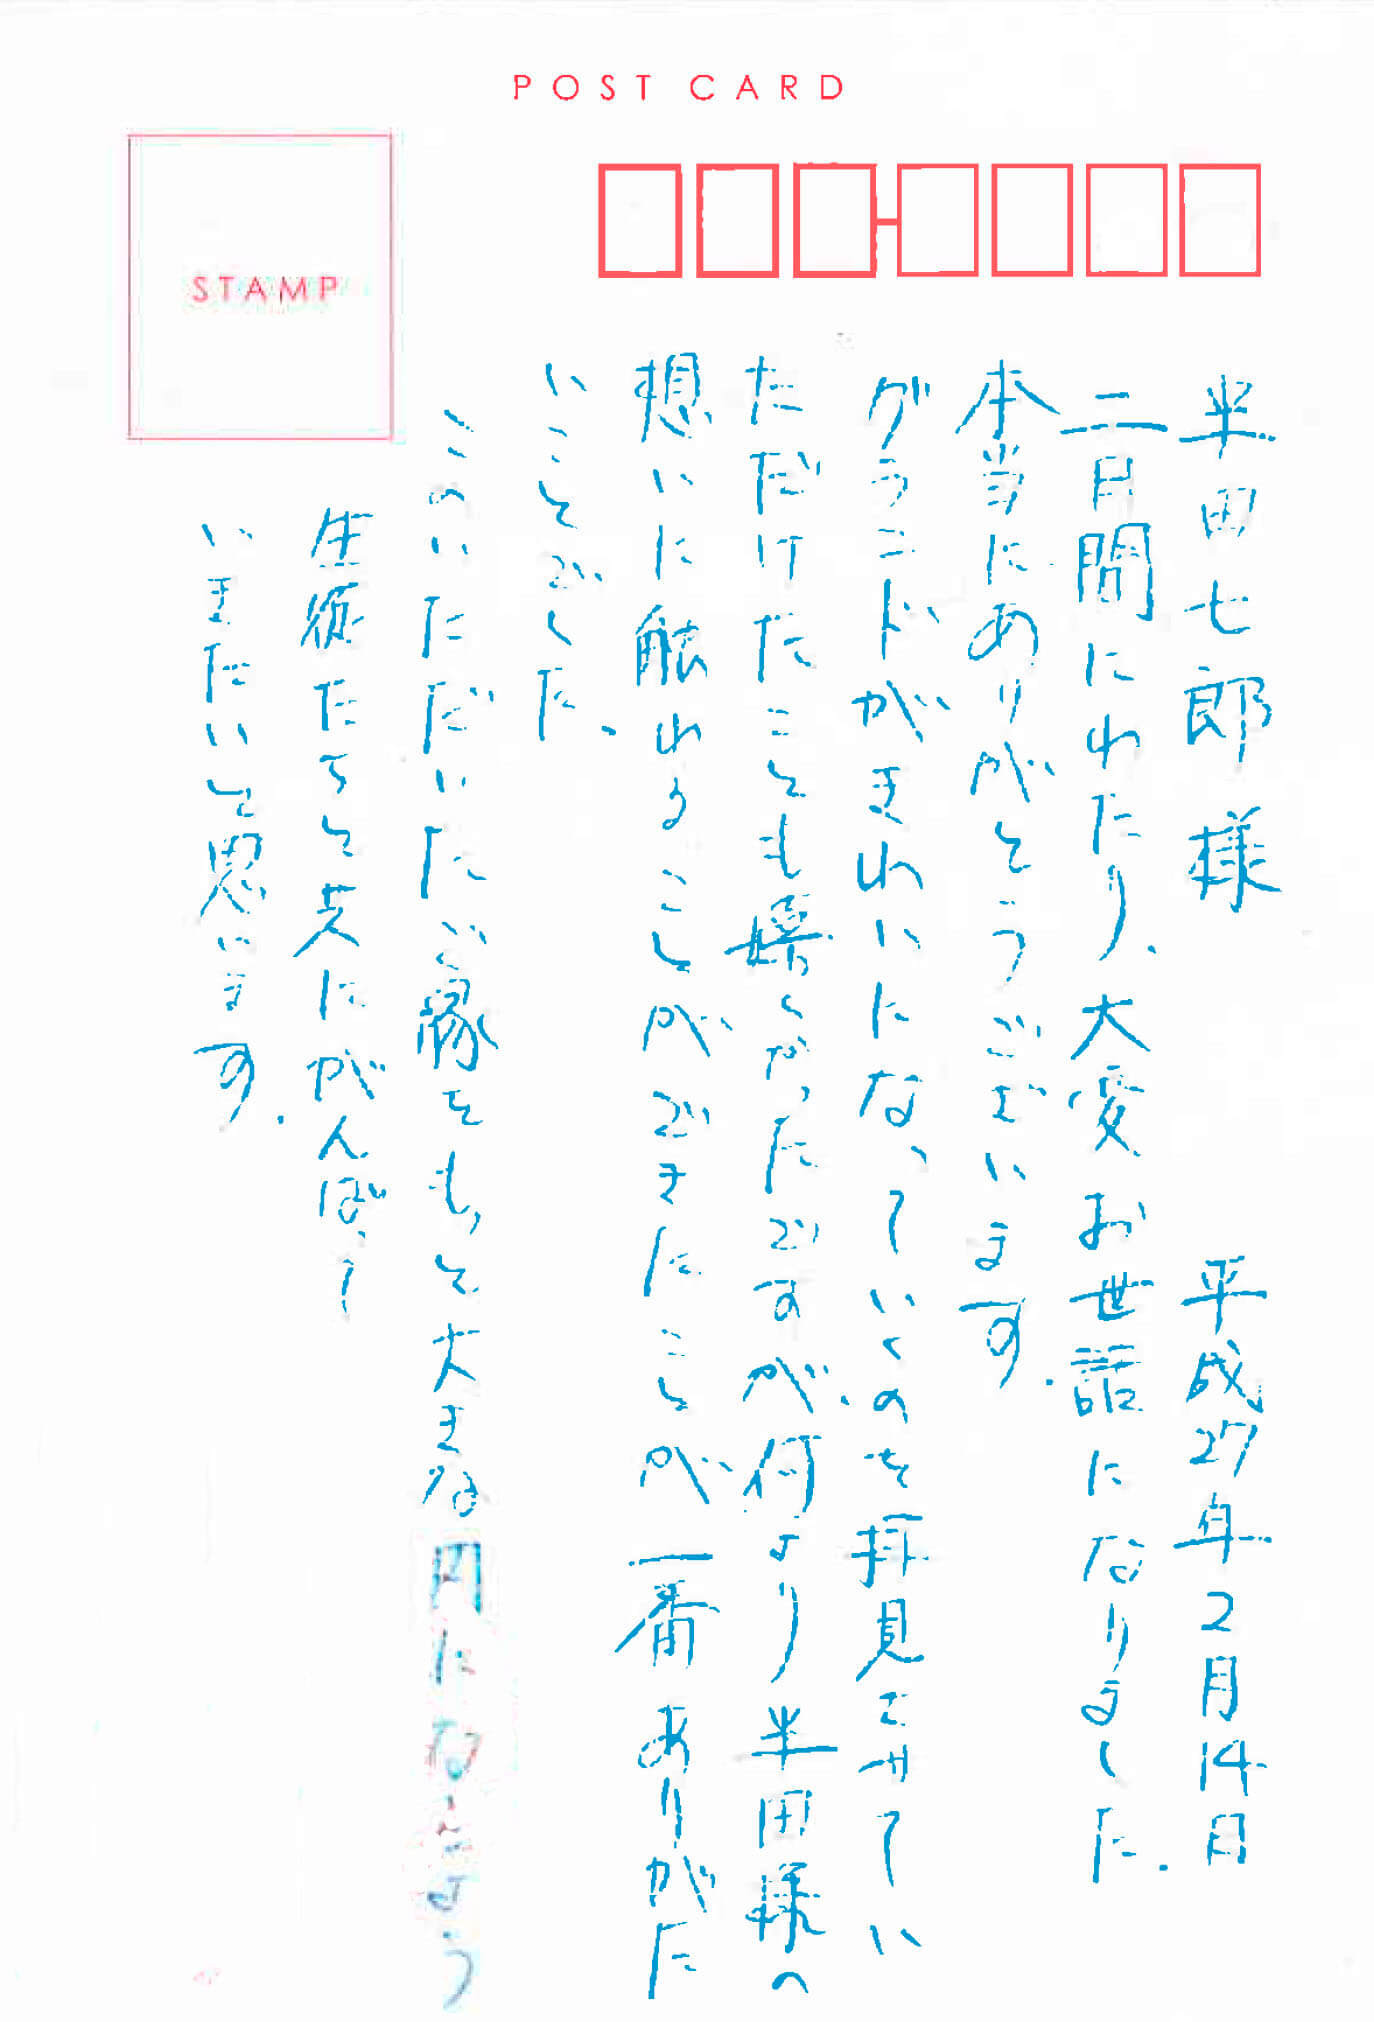 POST CARD
STAMP
半田七郎様 平成27年2月14日
二日間にわたり、大変お世話になりました。
本当にありがとうございます。
グランドがきれいになっていくのを拝見させてい
ただけたことも嬉しかったですが、何より半田様の
想いに触れることができたことが一番ありがた
いことでした。
このいただいたご縁をもっと大きな円になるよう
生徒たちと共にがんばって
いきたいと思います。